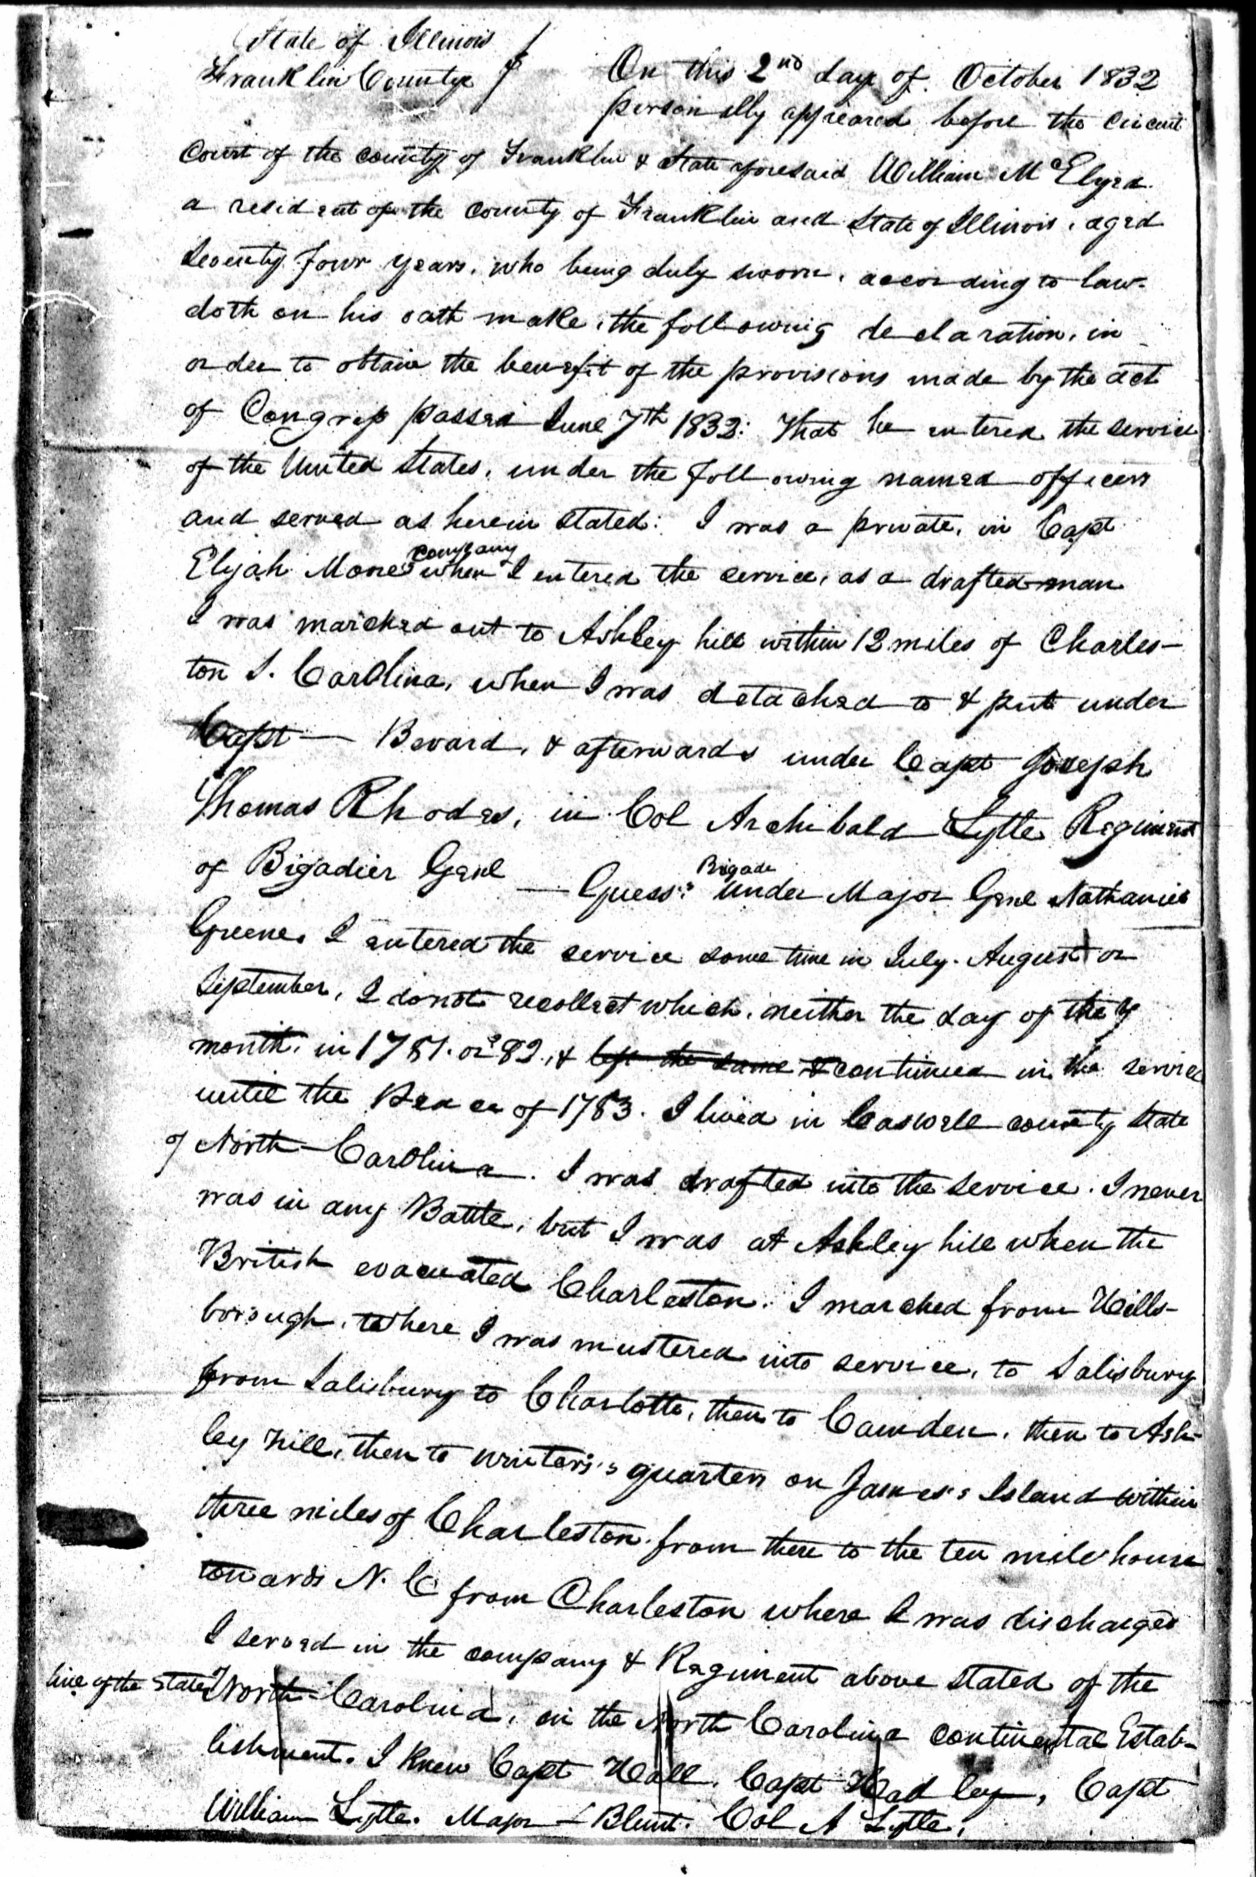 State of Illinois
Franklin County } On this 2nd day of October 1832
personally appeared before the circuit
court of the county of Franklin & State aforesaid William McElyea
a resident of the county of Franklin and State of Illinois, aged
seventy four years, who being duly sworn, according to law
doth on his oath make, the following declaration, in
order to obtain the benefit of the provisions made by the act
of Congress passed June 7th 1832: That he entered the service
of the United States, under the following named officers
and served as herein stated: I was a private, in Capt
Elijah Mores company when I entered the service, as a drafted man
I was marched out to Ashley hill within 12 miles of Charles-
ton S. Carolina, when I was detached to & put under
Capt — Bevard, & afterwards under Capt Joseph
Thomas Rhodes, in Col Archibald Lytle Regiment
of Bigadier Genl — Guess's Brigade under Major Genl Nathaniel
Greene, I entered the service some time in July. August or
September, I do not recollect which, neither the day of the
month, in 1781. or 82, & left the same & continued in the service
until the Peace of 1783. I lived in Caswell county State
of North-Carolina. I was drafted into the service. I never
was in any Battle, but I was at Ashley hill when the
British evacuated Charleston. I marched from Hills-
borough, where I was mustered into service, to Salisbury
from Salisbury to Charlotte, then to Camden, then to Ash-
ley hill, then to winter's quarters on James's Island within
three miles of Charleston. from there to the ten mile house
towards N. C from Charleston where I was discharged
I served in the company & Regiment above stated of the
line of the State North-Carolina, on the North Carolina continental Estab-
lishment. I knew Capt Hall, Capt Hadley, Capt
William Lytle. Major — Blunt. Col A Lytle,